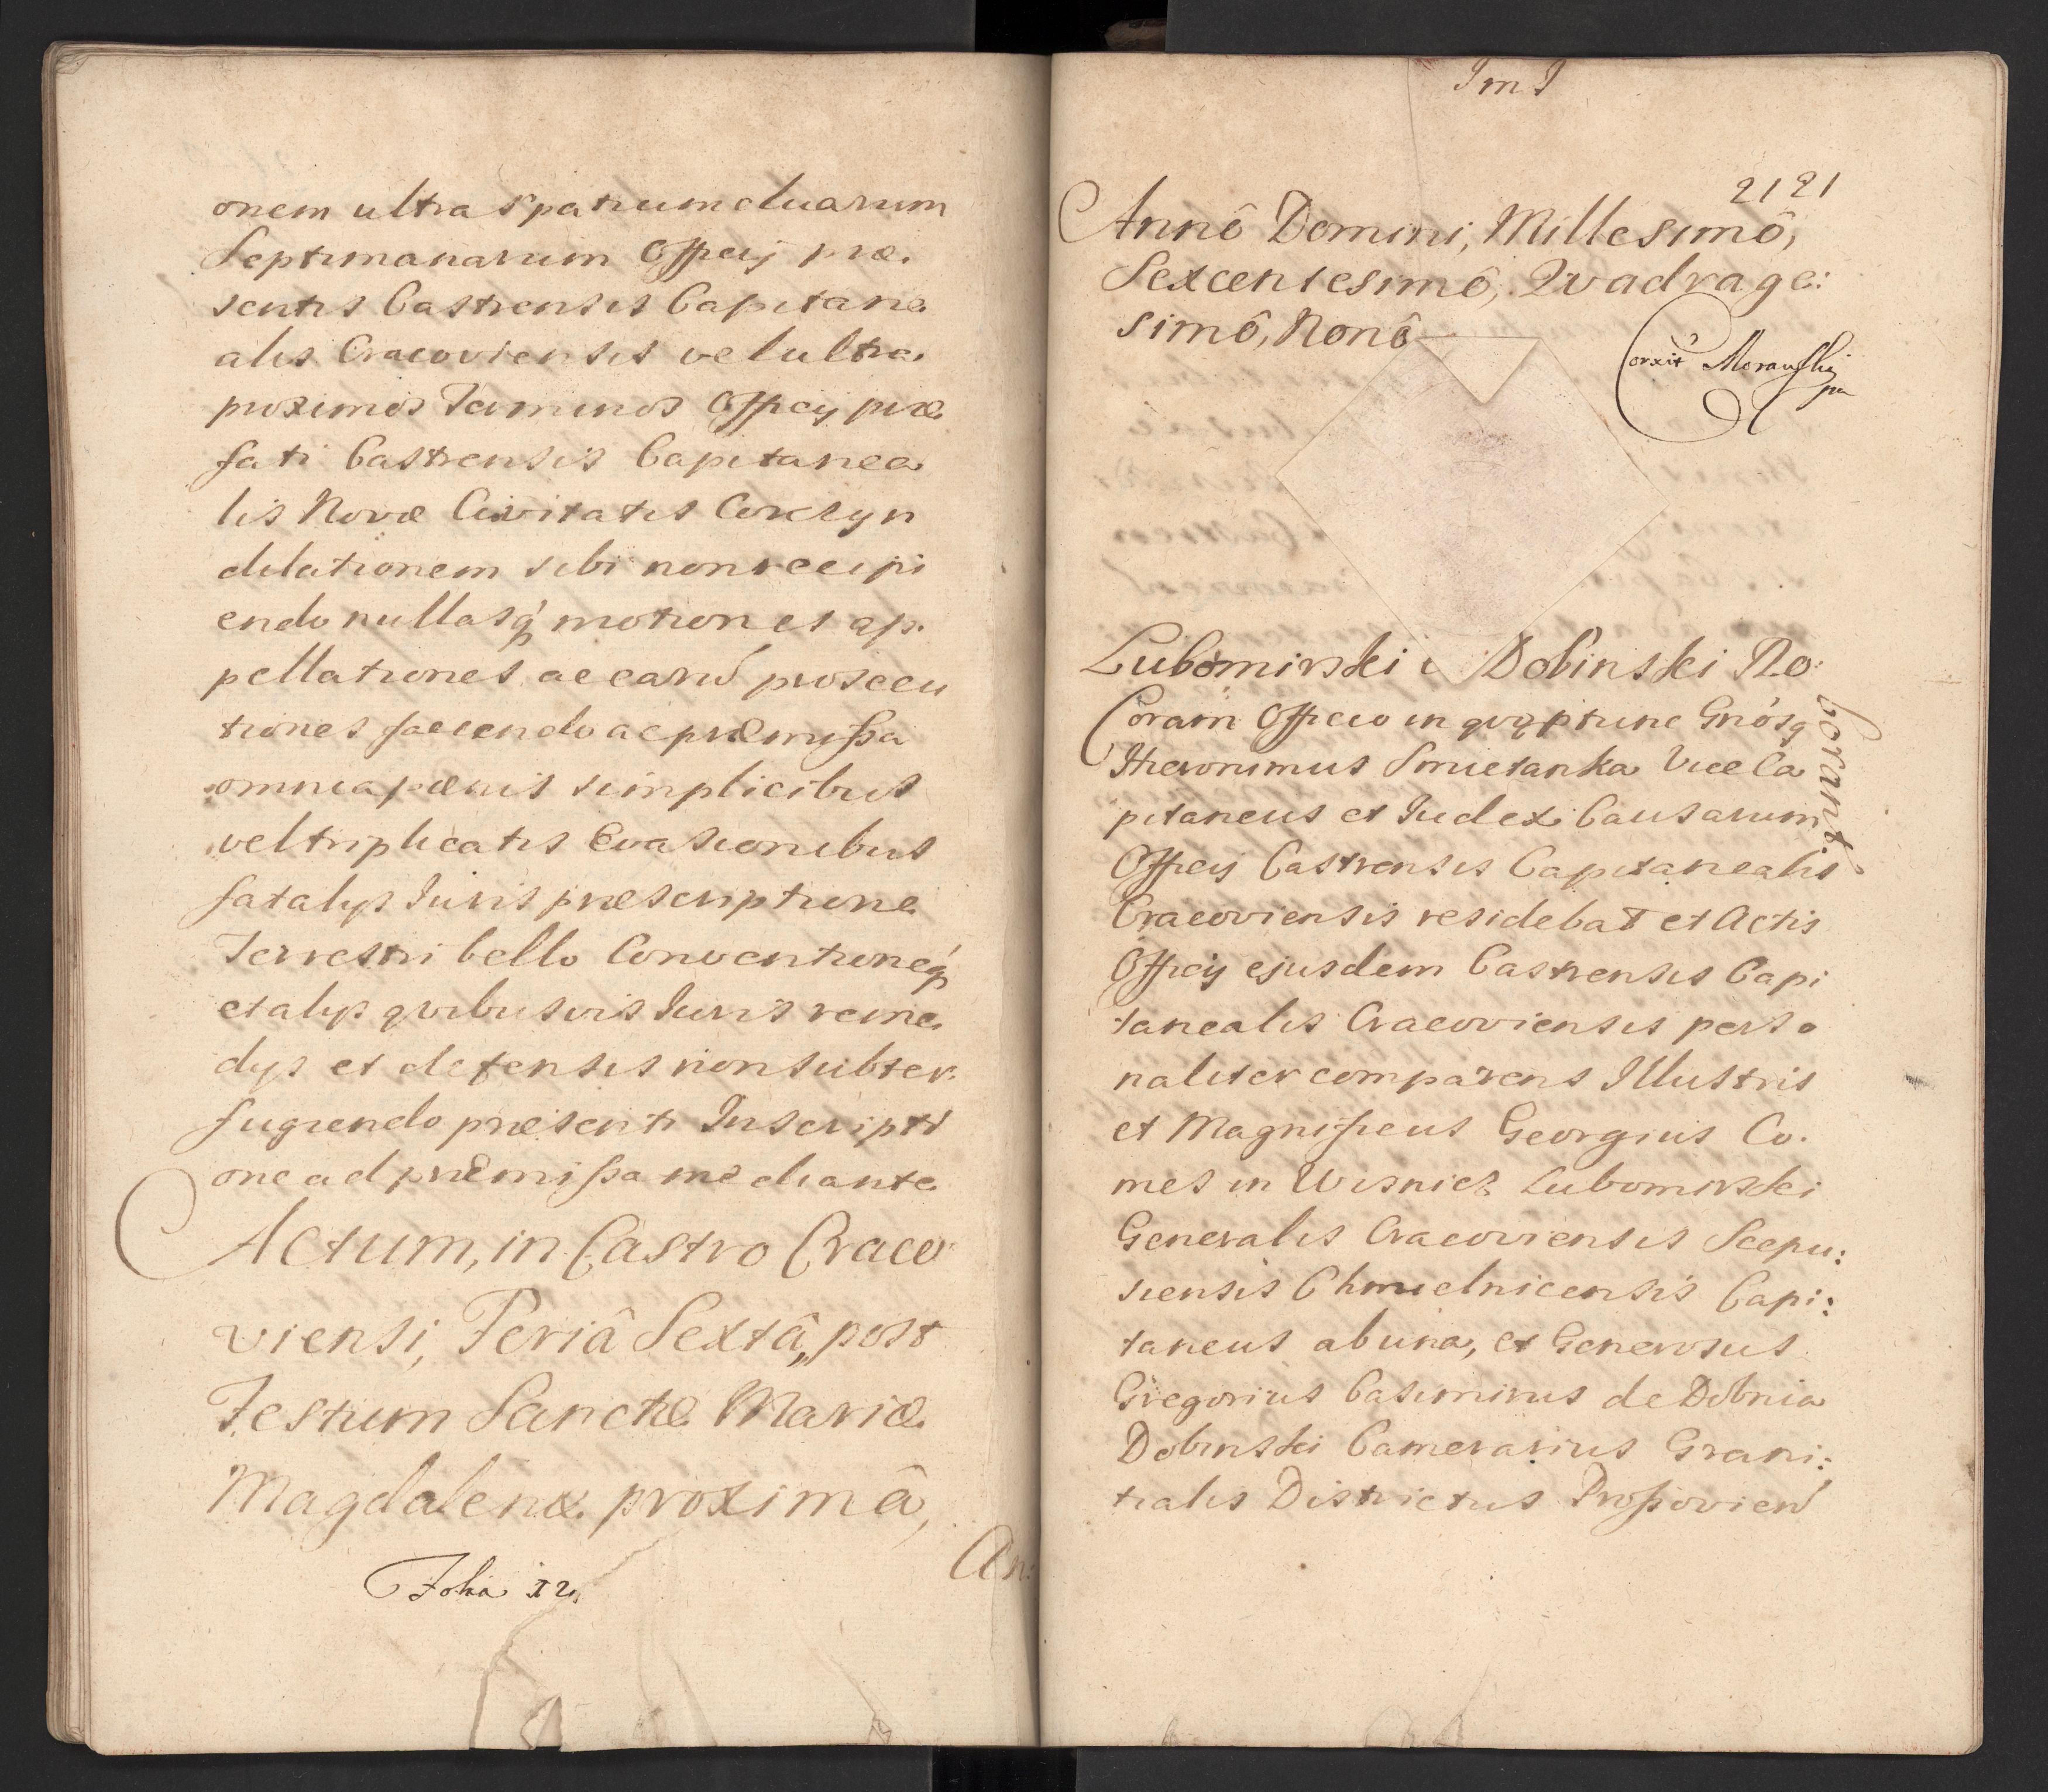 onem ultra spatium duarum
Septimanarum Officij præ
sentis Castrensis Capitane
alis Cracoviensis vel ultra
proximos Terminos Officij præ
fati Castrensis Capitanea
lis Novæ Civitatis Corczyn
dilationem sibi non recipi
endo nullasq motiones ap
pellationes ac earu prosecu
tiones faciendo ac præmissa
omnia pænis simplicibus
vel triplicatis Evasionibus
fatalys Iuris præscriptione
Terrestri bello Conventioneq
et alys qvibusvis Iuris reme
dys et defensis non subter
fugiendo præsenti Inscripti
one ad præmissa mediante
Actum, in Castro Craco
viensi, Feriâ Sextâ, post
Festum Sanctæ Mariæ
Magdalenæ proximâ,
An:
Folia 12
ImI
21 21
Annô Domini, Millesimô,
Sexcentesimô, Qvadrage:
simô, Nonô
Corxit Morawski
mp
Lubomirski i Dobinski Ro
borant
Coram Officio in qvo tunc Gnosq
Hieronimus Smietanka Vice Ca
pitaneus et Iudex Causarum
Officij Castrensis Capitanealis
Cracoviensis residebat et Actis
Officij ejusdem Castrensis Capi
tanealis Cracoviensis perso
naliter comparens Illustris
et Magnificus Georgius Co.
mes in Wisnicz Lubomirski
Generalis Cracoviensis Scepu:
siensis Chmielnicensis Capi:
taneus ab una, et Generosus
Gregorius Casimirus de Dobnia
Dobinski Camerarius Grani:
tialis Districtus Proszovien